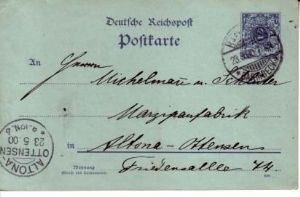 Deutsche Reichspost
Postkarte
An
Herren
Michelmann u.
Marzipanfabrik
in Altona-Ottensen
Friedensallee 44.
Wohnung
ALTONA-
OTTENSEN
23.5.00